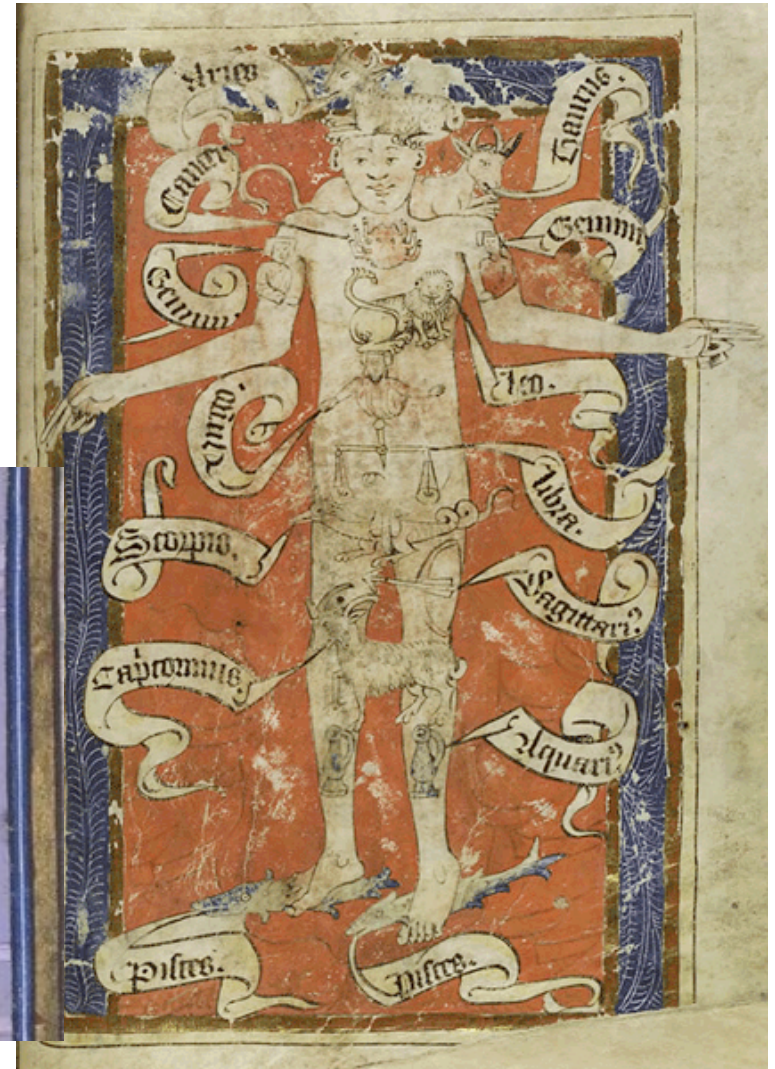 Aries
Taurus.
Cancer
Gemini
Gemini
Leo.
Virgo.
Libra.
Scorpio.
Sagittariꝰ
Capricornus.
Aquariꝰ
Pisces.
Pisces.